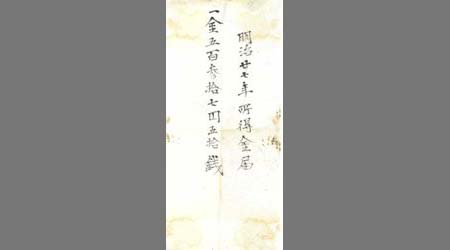 明治廿七年所得金届
一金五百参拾七円五拾銭